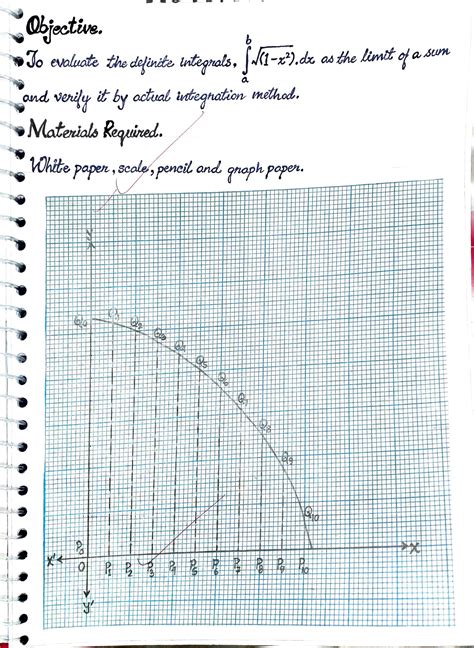 Objective.
To evaluate the definite integrals, ∫ₐᵇ √(1-x²).dx as the limit of a sum
and verify it by actual integration method.
Materials Required.
White paper, scale, pencil and graph paper.
Y
Q₅
Q₈
Q₉
Q₁₀
X' P₀ X
O P₁ P₂ P₃ P₄ P₅ P₆ P₇ P₈ P₉ P₁₀
Y'